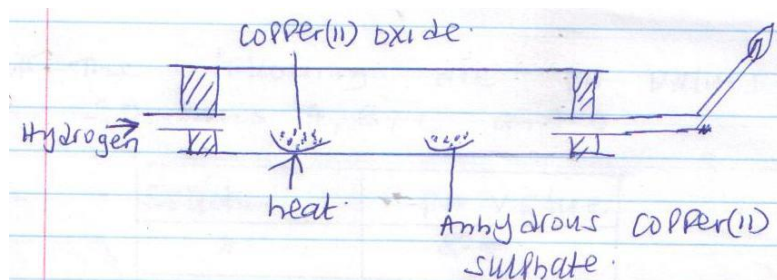 COPPer(II) oxide.
Hydrogen
heat.
Anhydrous COPPer(II)
sulphate.